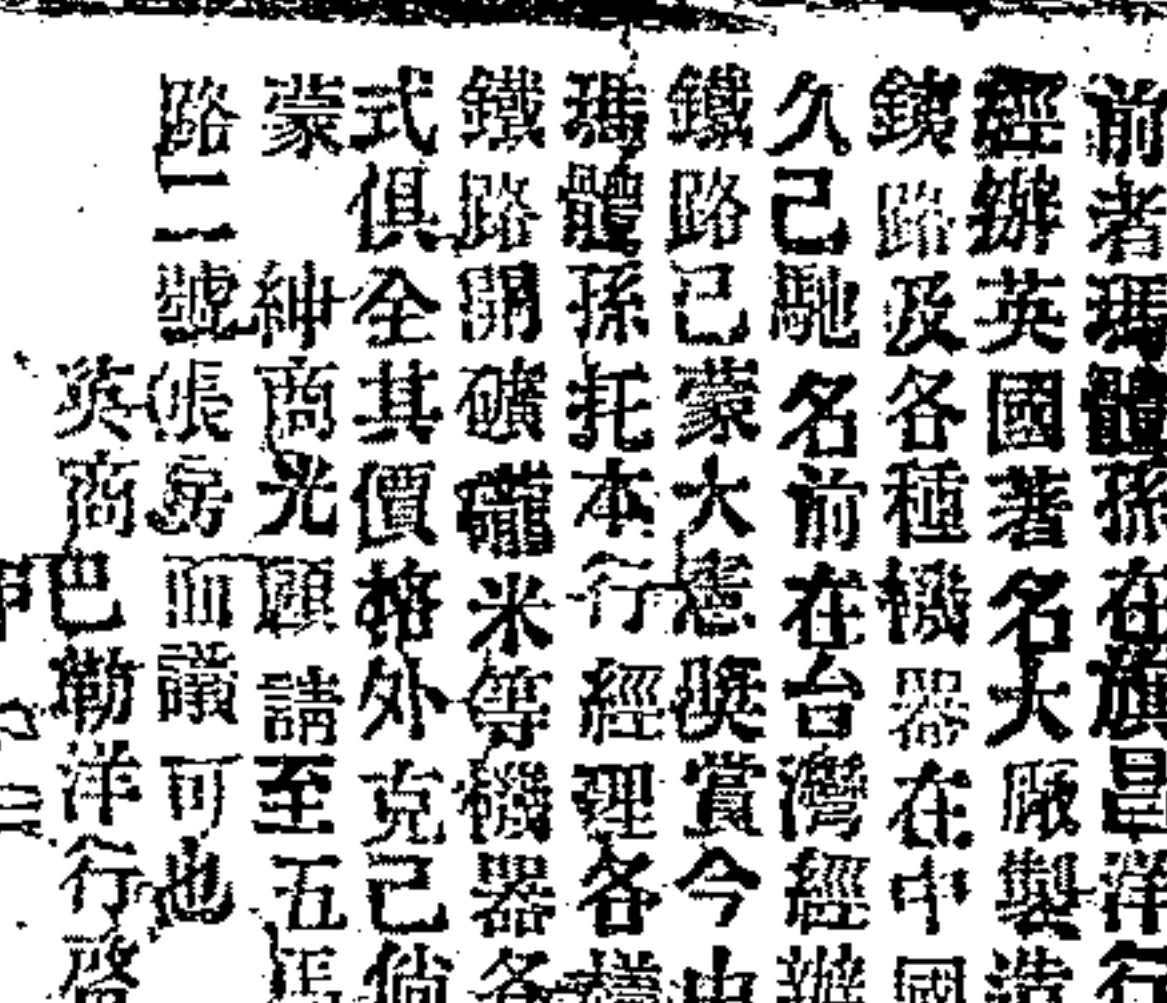 前者瑪體孫在旗昌洋行
經辦英國著名大厰製造
鐵路及各種機器在中國
久已馳名前在台灣經辦
鐵路已蒙大憲奬賞今由
瑪體孫托本行經理各樣
鐵路開礦礲米等機器各
式俱全其價格外克己倘
蒙紳商光顧請至五馬
路二號帳房面議可也
英商巴勒洋行啓